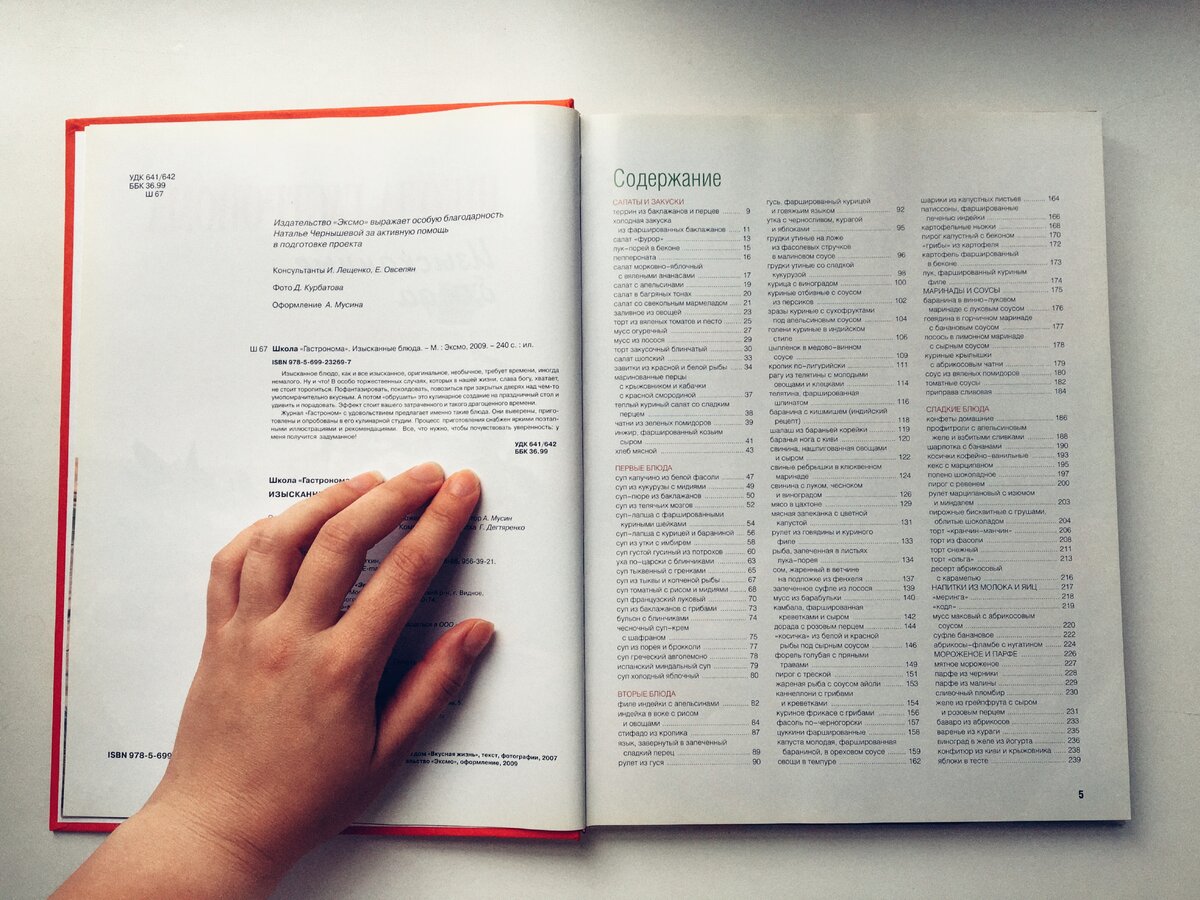 УДК 641/642
ББК 36.99
Ш 67
Издательство «Эксмо» выражает особую благодарность
Наталье Чернышевой за активную помощь
в подготовке проекта
Консультанты И. Лещенко, Е. Овселян
Фото Д. Курбатова
Оформление А. Мусина
Ш 67 Школа «Гастронома». Изысканные блюда. – М. : Эксмо, 2009. – 240 с. : ил.
ISBN 978-5-699-23269-7
Изысканное блюдо, как и все изысканное, оригинальное, необычное, требует времени, иногда
немалого. Ну и что! В особо торжественных случаях, которых в нашей жизни, слава богу, хватает,
не стоит торопиться. Пофантазировать, поколдовать, повозиться при закрытых дверях над чем-то
умопомрачительно вкусным. А потом «обрушить» это кулинарное создание на праздничный стол и
удивить и порадовать. Эффект стоит вашего затраченного и такого драгоценного времени.
Журнал «Гастроном» с удовольствием предлагает именно такие блюда. Они выверены, приго-
товлены и опробованы в его кулинарной студии. Процесс приготовления снабжен яркими поэтап-
ными иллюстрациями и рекомендациями. Все, что нужно, чтобы почувствовать уверенность: у
меня получится задуманное!
УДК 641/642
ББК 36.99
Школа «Гастронома»
ИЗЫСКАН
А. Мусин
Г. Дегтяренко
956-39-21.
г. Видное,
ISBN 978-5-699
«Вкусная жизнь», текст, фотографии, 2007
«Эксмо», оформление, 2009
Содержание
САЛАТЫ И ЗАКУСКИ
террин из баклажанов и перцев ....... 9
холодная закуска
из фаршированных баклажанов ..... 11
салат «фурор» ....... 13
лук-порей в беконе ....... 15
пепероната ....... 16
салат морковно-яблочный
с вялеными ананасами ....... 17
салат с апельсинами ....... 19
салат в багряных тонах ....... 20
салат со свекольным мармеладом ..... 21
заливное из овощей ....... 23
торт из вяленых томатов и песто ....... 25
мусс огуречный ....... 27
мусс из лосося ....... 29
торт закусочный блинчатый ....... 30
салат шопский ....... 33
завитки из красной и белой рыбы ..... 34
маринованные перцы
с крыжовником и кабачки
с красной смородиной ....... 37
теплый куриный салат со сладким
перцем ....... 38
чатни из зеленых помидоров ....... 39
инжир, фаршированный козьим
сыром ....... 41
хлеб мясной ....... 43
ПЕРВЫЕ БЛЮДА
суп капучино из белой фасоли ....... 47
суп из кукурузы с мидиями ....... 49
суп-пюре из баклажанов ....... 50
суп из телячьих мозгов ....... 52
суп-лапша с фаршированными
куриными шейками ....... 54
суп-лапша с курицей и бараниной ..... 56
суп из утки с имбирем ....... 58
суп густой гусиный из потрохов ....... 60
уха по-царски с блинчиками ....... 63
суп тыквенный с гренками ....... 65
суп из тыквы и копченой рыбы ....... 67
суп томатный с рисом и мидиями ..... 68
суп французский луковый ....... 70
суп из баклажанов с грибами ....... 73
бульон с блинчиками ....... 74
чесночный суп-крем
с шафраном ....... 75
суп из порея и брокколи ....... 77
суп греческий авголемоно ....... 78
испанский миндальный суп ....... 79
суп холодный яблочный ....... 80
ВТОРЫЕ БЛЮДА
филе индейки с апельсинами ....... 82
индейка в воке с рисом
и овощами ....... 84
стифадо из кролика ....... 87
язык, завернутый в запеченный
сладкий перец ....... 89
рулет из гуся ....... 90
гусь, фаршированный курицей
и говяжьим языком ....... 92
утка с черносливом, курагой
и яблоками ....... 95
грудки утиные на ложе
из фасолевых стручков
в малиновом соусе ....... 96
грудки утиные со сладкой
кукурузой ....... 98
курица с виноградом ....... 100
куриные отбивные с соусом
из персиков ....... 102
зразы куриные с сухофруктами
под апельсиновым соусом ....... 104
голени куриные в индийском
стиле ....... 106
цыпленок в медово-винном
соусе ....... 109
кролик по-лигурийски ....... 111
рагу из телятины с молодыми
овощами и клецками ....... 114
телятина, фаршированная
шпинатом ....... 116
баранина с кишмишем (индийский
рецепт) ....... 118
шалаш из бараньей корейки ....... 119
баранья нога с киви ....... 120
свинина, нашпигованная овощами
и сыром ....... 122
свиные ребрышки в клюквенном
маринаде ....... 124
свинина с луком, чесноком
и виноградом ....... 126
мясо в цахтоне ....... 129
мясная запеканка с цветной
капустой ....... 131
рулет из говядины и куриного
филе ....... 133
рыба, запеченная в листьях
лука-порея ....... 134
сом, жаренный в ветчине
на подложке из фенхеля ....... 137
запеченное суфле из лосося ....... 139
мусс из барабульки ....... 140
камбала, фаршированная
креветками и сыром ....... 142
дорада с розовым перцем ....... 144
«косичка» из белой и красной
рыбы под сырным соусом ....... 146
форель голубая с пряными
травами ....... 149
пирог с треской ....... 151
жареная рыба с соусом айоли ....... 153
каннеллони с грибами
и креветками ....... 154
куриное фрикасе с грибами ....... 156
фасоль по-черногорски ....... 157
цуккини фаршированные ....... 158
капуста молодая, фаршированная
бараниной, в ореховом соусе ..... 159
овощи в темпуре ....... 162
шарики из капустных листьев ....... 164
патиссоны, фаршированные
печенью индейки ....... 166
картофельные ньокки ....... 168
пирог капустный с беконом ....... 170
«грибы» из картофеля ....... 172
картофель фаршированный
в беконе ....... 173
лук, фаршированный куриным
филе ....... 174
МАРИНАДЫ И СОУСЫ ....... 175
баранина в винно-луковом
маринаде с луковым соусом ....... 176
говядина в горчичном маринаде
с банановым соусом ....... 177
лосось в лимонном маринаде
с сырным соусом ....... 178
куриные крылышки
с абрикосовым чатни ....... 179
соус из вяленых помидоров ....... 180
томатные соусы ....... 182
приправа сливовая ....... 184
СЛАДКИЕ БЛЮДА
конфеты домашние ....... 186
профитроли с апельсиновым
желе и взбитыми сливками ....... 188
шарлотка с бананами ....... 190
косички кофейно-ванильные ....... 193
кекс с марципаном ....... 195
полено шоколадное ....... 197
пирог с ревенем ....... 200
рулет марципановый с изюмом
и миндалем ....... 203
пирожные бисквитные с грушами,
облитые шоколадом ....... 204
торт «кранчин-манчин» ....... 206
торт из фасоли ....... 208
торт снежный ....... 211
торт «ольга» ....... 213
десерт абрикосовый
с карамелью ....... 216
НАПИТКИ ИЗ МОЛОКА И ЯИЦ ....... 217
«меринга» ....... 218
«кодл» ....... 219
мусс маковый с абрикосовым
соусом ....... 220
суфле банановое ....... 222
абрикосы-фламбе с нугатином ....... 224
МОРОЖЕНОЕ И ПАРФЕ ....... 226
мятное мороженое ....... 227
парфе из черники ....... 228
парфе из малины ....... 229
сливочный пломбир ....... 230
желе из грейпфрута с сыром
и розовым перцем ....... 231
баваро из абрикосов ....... 233
варенье из кураги ....... 235
виноград в желе из йогурта ....... 236
конфитюр из киви и крыжовника ..... 238
яблоки в тесте ....... 239
5